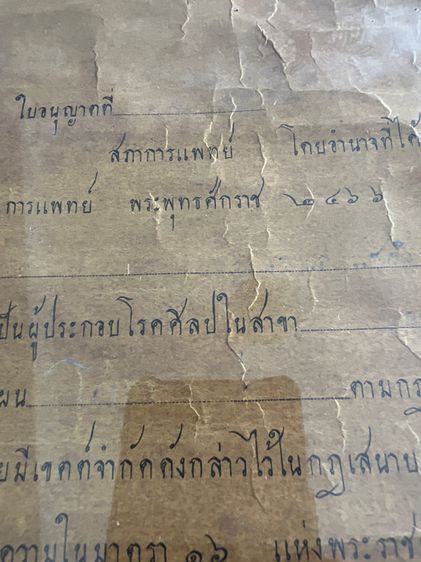 ใบอนุญาตที่
สภาการแพทย์ โดยอำนาจที่ได้
การแพทย์ พระพุทธศักราช ๒๔๖๖
เป็นผู้ประกอบโรคศิลปในสาขา
แผน ตามกฎ
ยมีเขตต์จำกัดดังกล่าวไว้ในกฎเสนาบ
ความในมาตรา ๑๖ แห่งพระราช